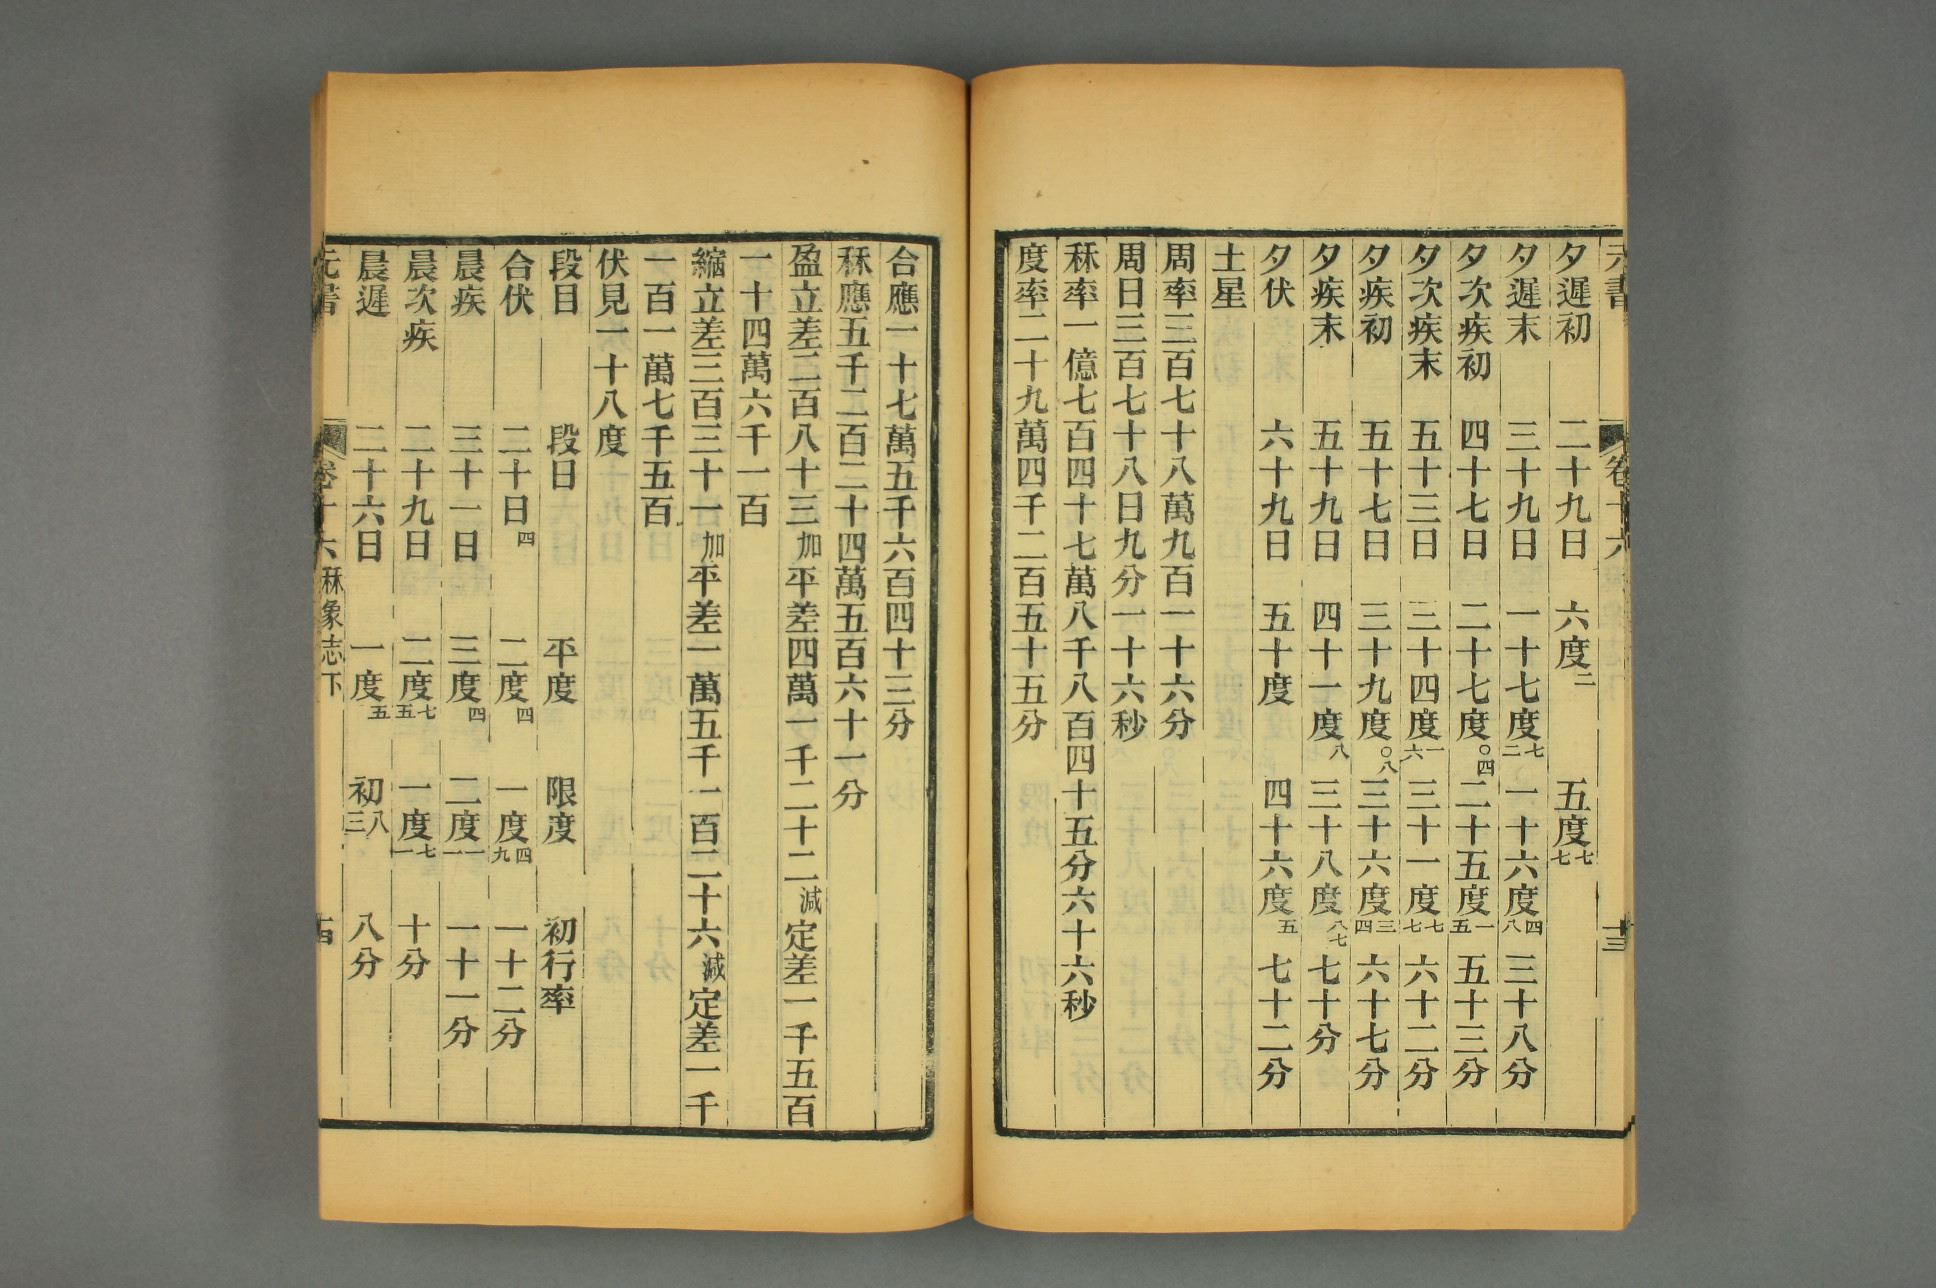 元書　卷十六　十三
夕遲初　二十九日　六度二　五度七七
夕遲末　三十九日　一十七度七二　一十六度四八　三十八分
夕次疾初　四十七日　二十七度〇四　二十五度一五　五十三分
夕次疾末　五十三日　三十四度一六　三十一度七七　六十二分
夕疾初　五十七日　三十九度〇八　三十六度三四　六十七分
夕疾末　五十九日　四十一度八　三十八度八七　七十分
夕伏　六十九日　五十度　四十六度五　七十二分
土星
周率三百七十八萬九百一十六分
周日三百七十八日九分一十六秒
秝率一億七百四十七萬八千八百四十五分六十六秒
度率二十九萬四千二百五十五分
合應一十七萬五千六百四十三分
秝應五千二百二十四萬五百六十一分
盈立差二百八十三加平差四萬一千二十二減定差一千五百
一十四萬六千一百
縮立差三百三十一加平差一萬五千一百二十六減定差一千
一百一萬七千五百
伏見一十八度
段目　段日　平度　限度　初行率
合伏　二十日四　二度四　一度四九　一十二分
晨疾　三十一日　三度四　二度一一　一十一分
晨次疾　二十九日　二度七五　一度七一　十分
晨遲　二十六日　一度五　初八三　八分
元書　卷十六秝象志下　十四